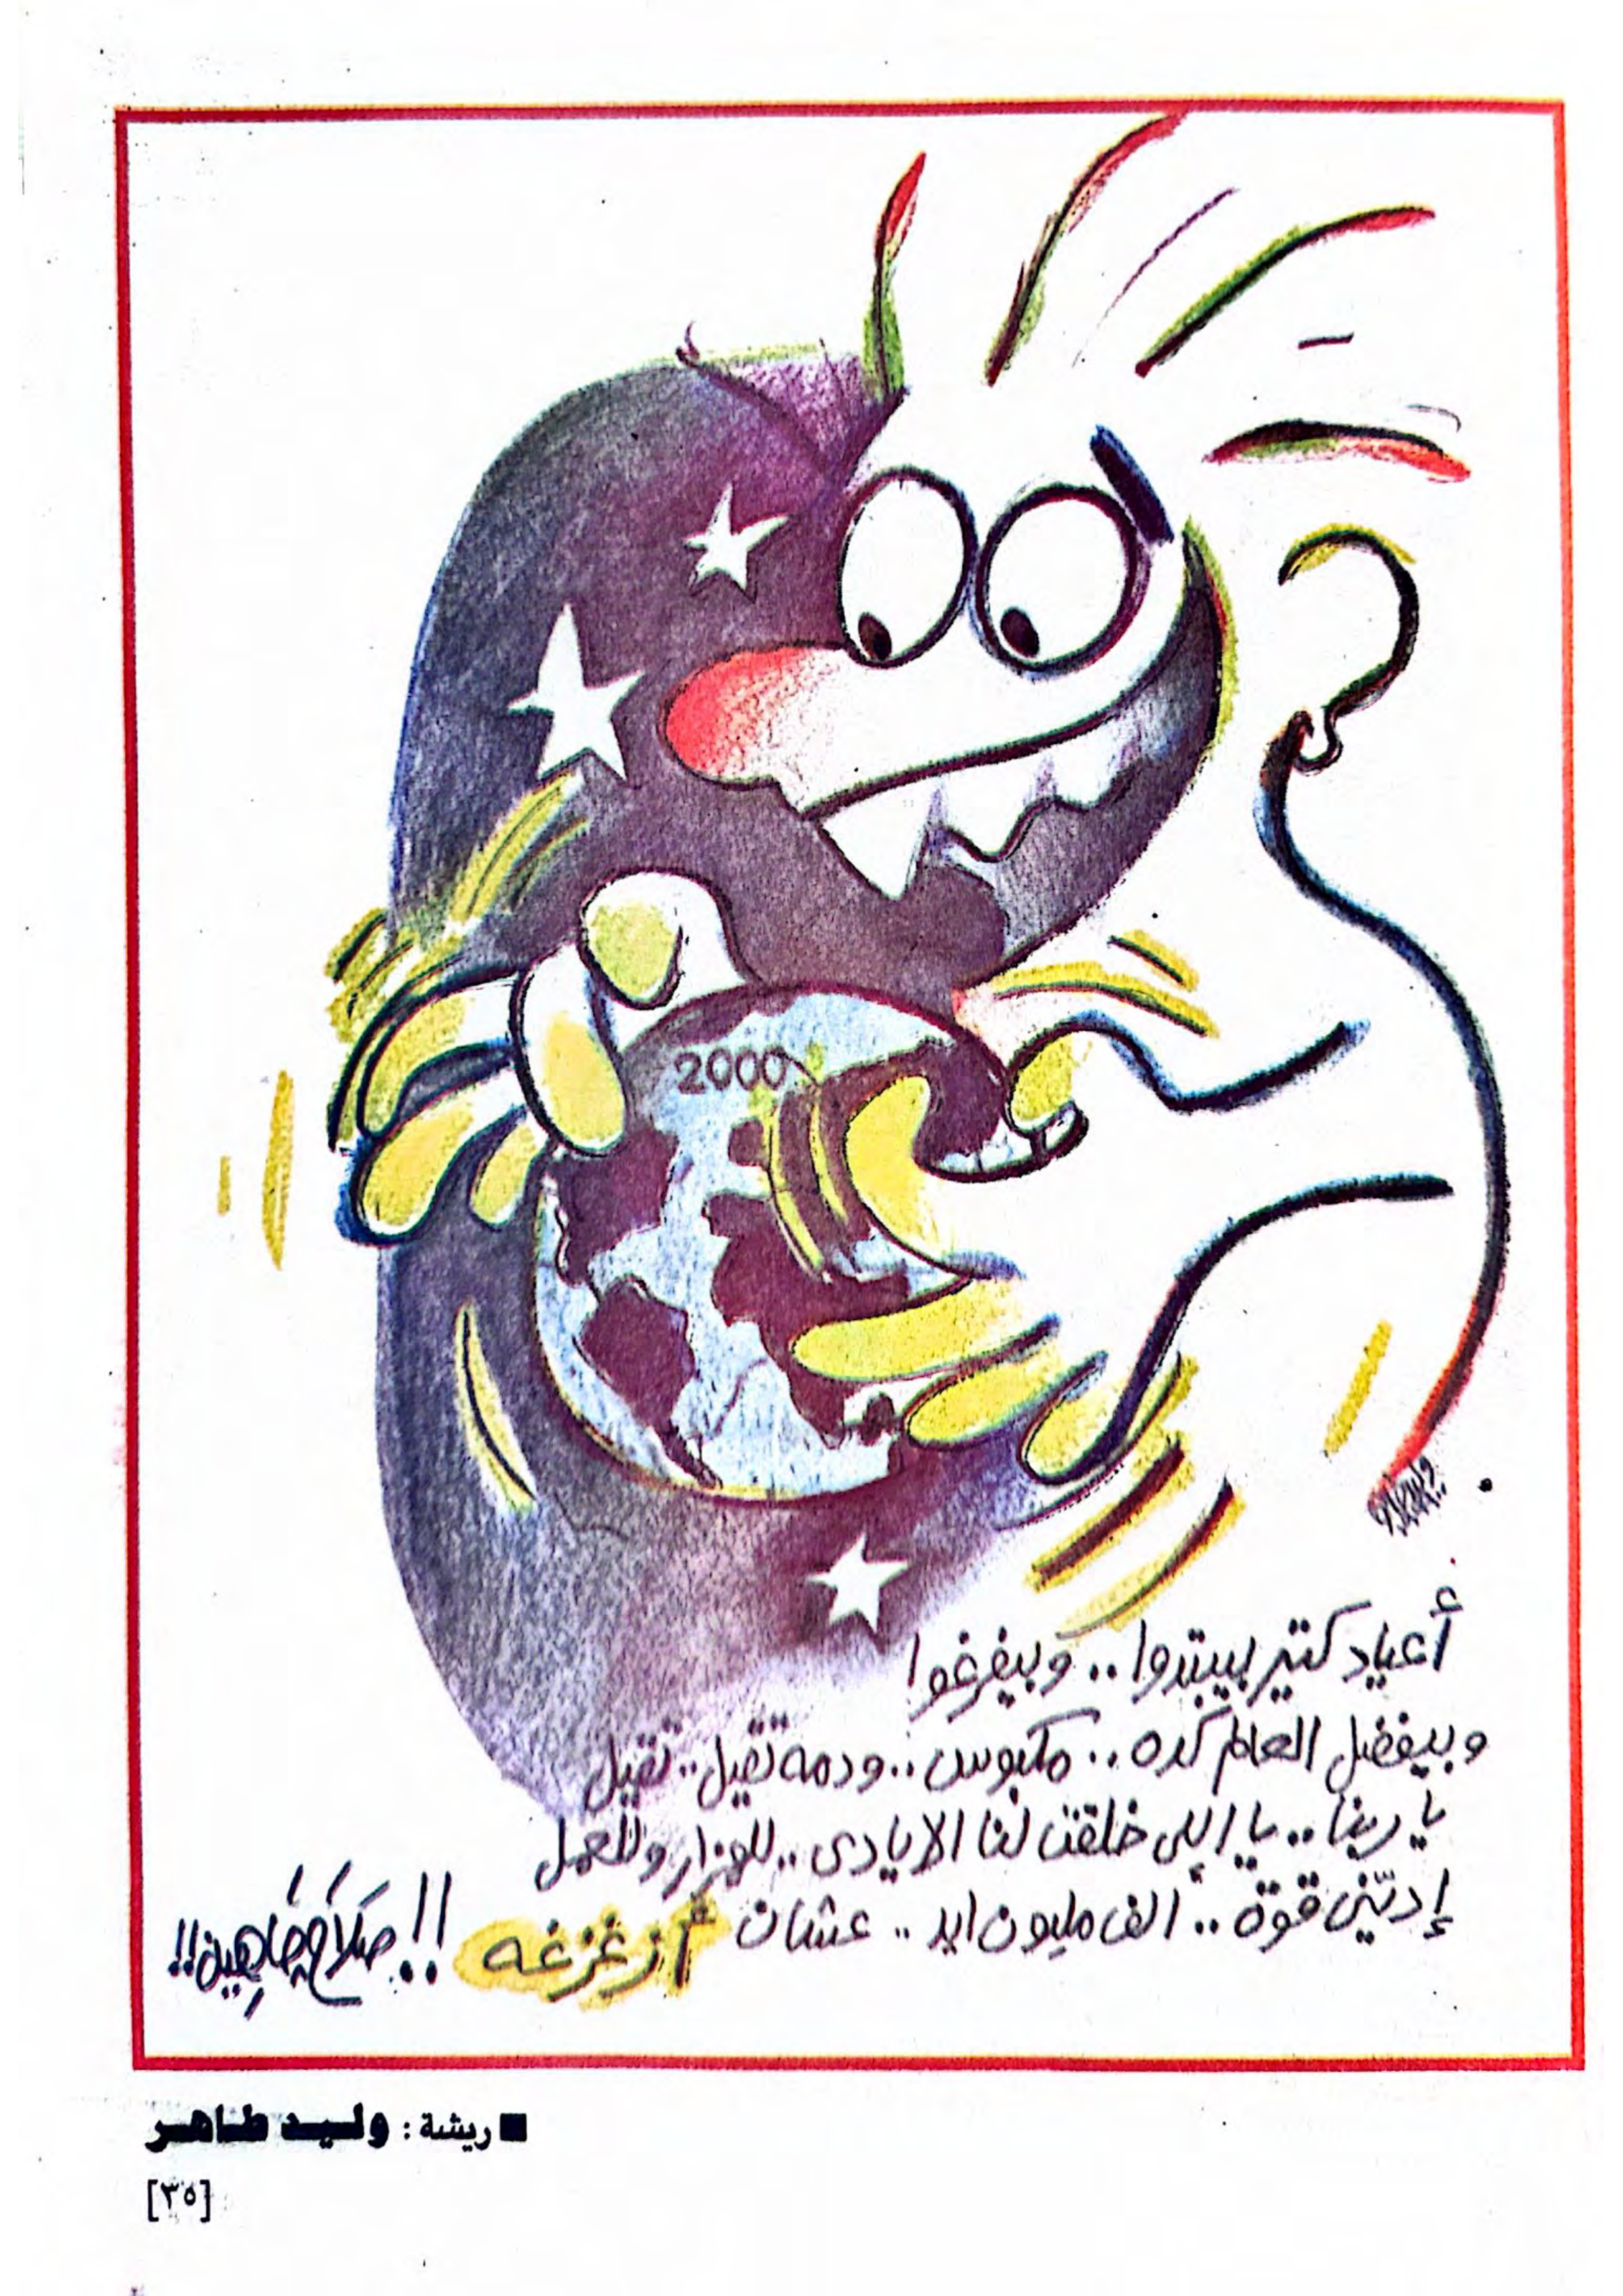 2000
وليد
أعياد كتير بيبتدوا .. وبيفرغوا
وبيفضل العالم كده .. مكبوس .. ودمه تقيل .. تقيل
يا ربنا .. يا إللى خلقت لنا الايادى .. للهزار وللعمل
إدّينى قوة .. الف مليون ايد .. عشان أزغزغه !!
صلاح چاهين !!
■ ريشة : وليد طاهر
[٣٥]